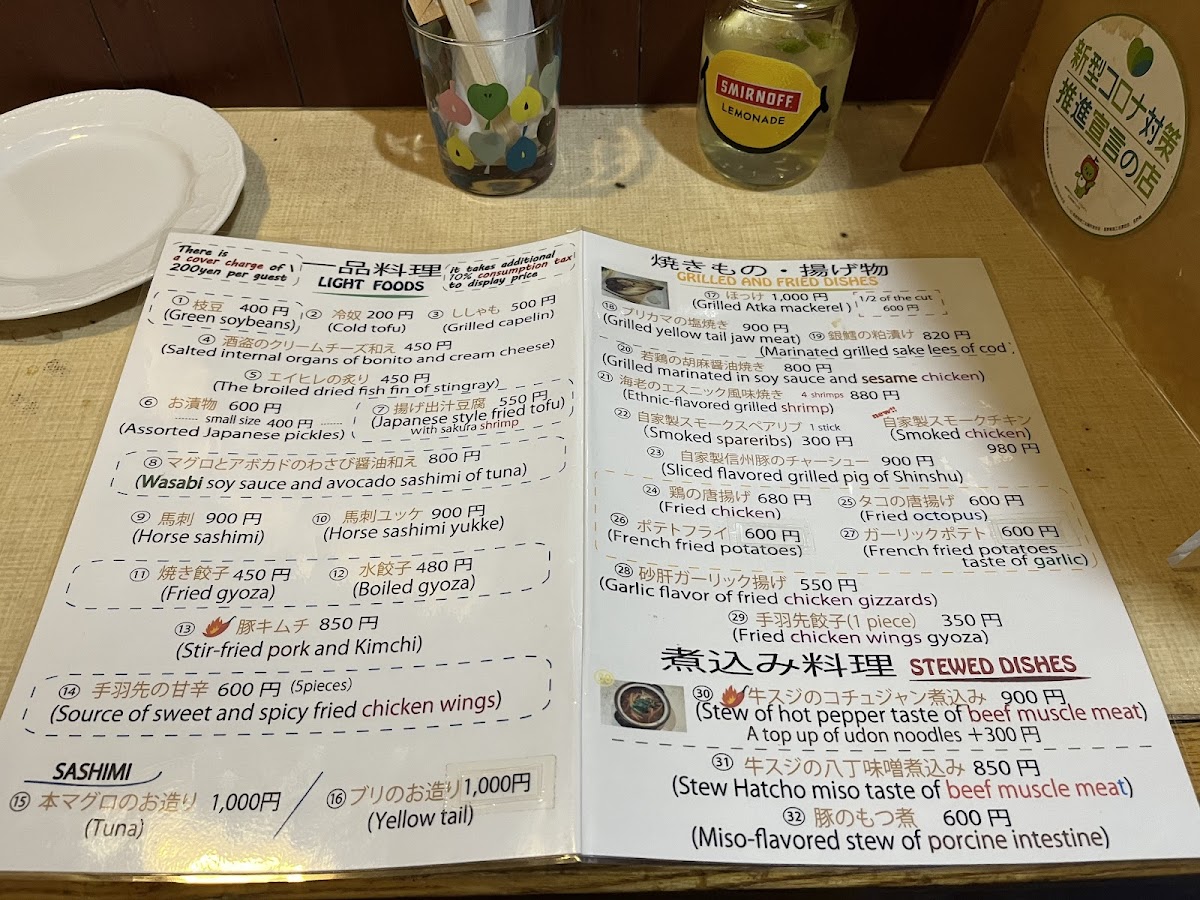 SMIRNOFF
LEMONADE
新型コロナ対策
推進宣言の店
There is
a cover charge of
200yen per guest
一品料理
LIGHT FOODS
it takes additional
10% consumption tax
to display price
① 枝豆 400円
(Green soybeans)
② 冷奴 200円
(Cold tofu)
③ ししゃも 500円
(Grilled capelin)
④ 酒盗のクリームチーズ和え 450円
(Salted internal organs of bonito and cream cheese)
⑤ エイヒレの炙り 450円
(The broiled dried fish fin of stingray)
⑥ お漬物 600円
small size 400円
(Assorted Japanese pickles)
⑦ 揚げ出汁豆腐 550円
(Japanese style fried tofu)
with sakura shrimp
⑧ マグロとアボカドのわさび醤油和え 800円
(Wasabi soy sauce and avocado sashimi of tuna)
⑨ 馬刺 900円
(Horse sashimi)
⑩ 馬刺ユッケ 900円
(Horse sashimi yukke)
⑪ 焼き餃子 450円
(Fried gyoza)
⑫ 水餃子 480円
(Boiled gyoza)
⑬ 豚キムチ 850円
(Stir-fried pork and Kimchi)
⑭ 手羽先の甘辛 600円 (5pieces)
(Source of sweet and spicy fried chicken wings)
SASHIMI
⑮ 本マグロのお造り 1,000円
(Tuna)
⑯ ブリのお造り 1,000円
(Yellow tail)
焼きもの・揚げ物
GRILLED AND FRIED DISHES
⑰ ほっけ 1,000円
(Grilled Atka mackerel)
1/2 of the cut
600円
⑱ ブリカマの塩焼き 900円
(Grilled yellow tail jaw meat)
⑲ 銀鱈の粕漬け 820円
(Marinated grilled sake lees of cod)
⑳ 若鶏の胡麻醤油焼き 800円
(Grilled marinated in soy sauce and sesame chicken)
㉑ 海老のエスニック風味焼き 4 shrimps 880円
(Ethnic-flavored grilled shrimp)
㉒ 自家製スモークスペアリブ 1 stick
(Smoked spareribs) 300円
new!!
自家製スモークチキン
(Smoked chicken)
980円
㉓ 自家製信州豚のチャーシュー 900円
(Sliced flavored grilled pig of Shinshu)
㉔ 鶏の唐揚げ 680円
(Fried chicken)
㉕ タコの唐揚げ 600円
(Fried octopus)
㉖ ポテトフライ 600円
(French fried potatoes)
㉗ ガーリックポテト 600円
(French fried potatoes
taste of garlic)
㉘ 砂肝ガーリック揚げ 550円
(Garlic flavor of fried chicken gizzards)
㉙ 手羽先餃子(1 piece) 350円
(Fried chicken wings gyoza)
煮込み料理 STEWED DISHES
㉚ 牛スジのコチュジャン煮込み 900円
(Stew of hot pepper taste of beef muscle meat)
A top up of udon noodles +300円
㉛ 牛スジの八丁味噌煮込み 850円
(Stew Hatcho miso taste of beef muscle meat)
㉜ 豚のもつ煮 600円
(Miso-flavored stew of porcine intestine)